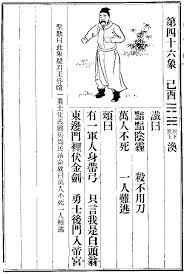 第四十六象 己酉 ䷺ 坎下巽上 渙
讖曰
黯黯陰霾 殺不用刀
萬人不死 一人難逃
頌曰
有一軍人身帶弓 只言我是白頭翁
東邊門裡伏金劍 勇士後門入帝宮
聖歎曰此象疑君王昏瞶一勇士仗義興兵為民請命故曰萬人不死一人難逃